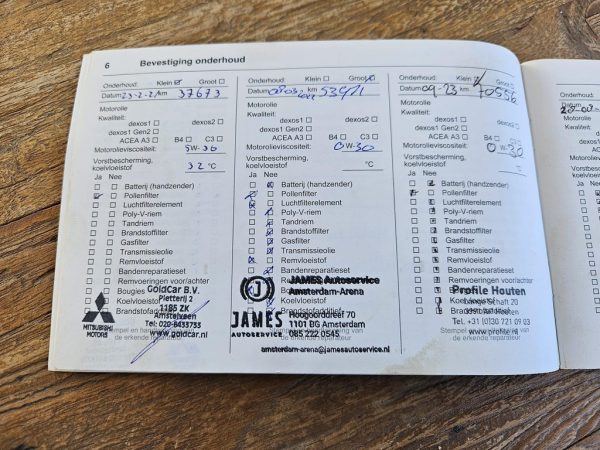 6 Bevestiging onderhoud
Onderhoud: Klein Groot
Datum 23-2-21 km 37673
Motorolie
Kwaliteit:
dexos1 dexos2
dexos1 Gen2
ACEA A3 B4 C3
Motorolieviscositeit: 5W-30
Vorstbescherming,
koelvloeistof 32 °C
Ja Nee
Batterij (handzender)
Pollenfilter
Luchtfilterelement
Poly-V-riem
Tandriem
Brandstoffilter
Gasfilter
Transmissieolie
Remvloeistof
Bandenreparatieset
Remvoeringen voor/achter
Bougies
Koelvloeistof
Brandstofadditief
MITSUBISHI
MOTORS
GoldCar B.V.
Pletterij 2
1185 ZK
Amstelveen
Tel: 020-6433733
www.goldcar.nl
Stempel en
de erkende reparateur
Onderhoud: Klein Groot
Datum km 53471
Motorolie
Kwaliteit:
dexos1 dexos2
dexos1 Gen2
ACEA A3 B4 C3
Motorolieviscositeit: 0W-30
Vorstbescherming,
koelvloeistof °C
Ja Nee
Batterij (handzender)
Pollenfilter
Luchtfilterelement
Poly-V-riem
Tandriem
Brandstoffilter
Gasfilter
Transmissieolie
Remvloeistof
Bandenreparatieset
JAMES
AUTOSERVICE
JAMES Autoservice
Amsterdam-Arena
Hoogoorddreef 70
1101 BG Amsterdam
085 222 0545
amsterdam-arena@jamesautoservice.nl
Onderhoud: Klein Groot
Datum 09-23 km 70556
Motorolie
Kwaliteit:
dexos1 dexos2
dexos1 Gen2
ACEA A3 B4 C3
Motorolieviscositeit: 0W-30
Vorstbescherming,
koelvloeistof °C
Ja Nee
Batterij (handzender)
Pollenfilter
Luchtfilterelement
Poly-V-riem
Tandriem
Brandstoffilter
Gasfilter
Transmissieolie
Remvloeistof
Bandenreparatieset
Remvoeringen voor/achter
Profile Houten
Lange Schaft 20
Houten
Tel. +31 (0)30 721 09 03
www.profile.nl
de erkende reparateur